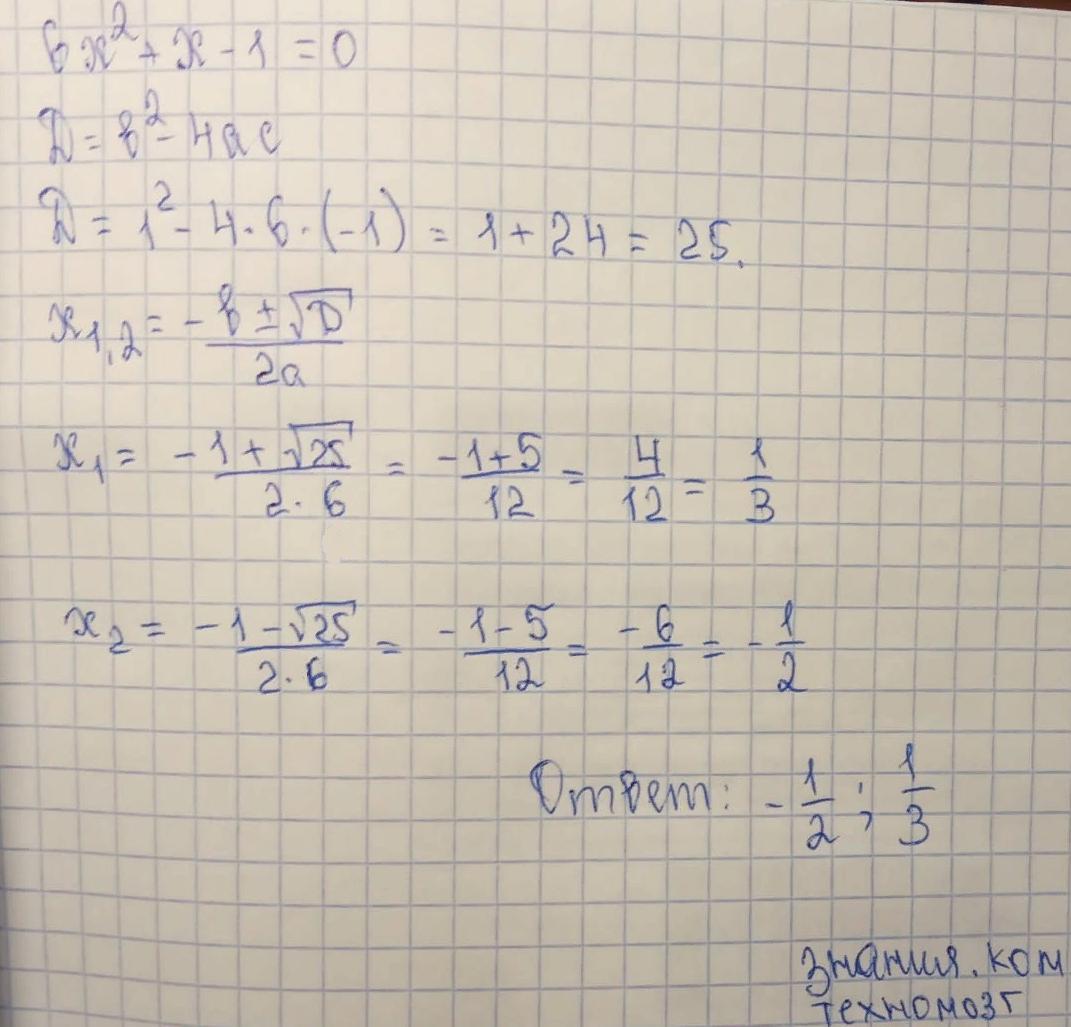 6x² + x - 1 = 0
D = b² - 4ac
D = 1² - 4 · 6 · (-1) = 1 + 24 = 25.
x₁,₂ = -b ± √D / 2a
x₁ = -1 + √25 / 2 · 6 = -1 + 5 / 12 = 4/12 = 1/3
x₂ = -1 - √25 / 2 · 6 = -1 - 5 / 12 = -6/12 = -1/2
Ответ: -1/2 ; 1/3
знания.ком
техномозг